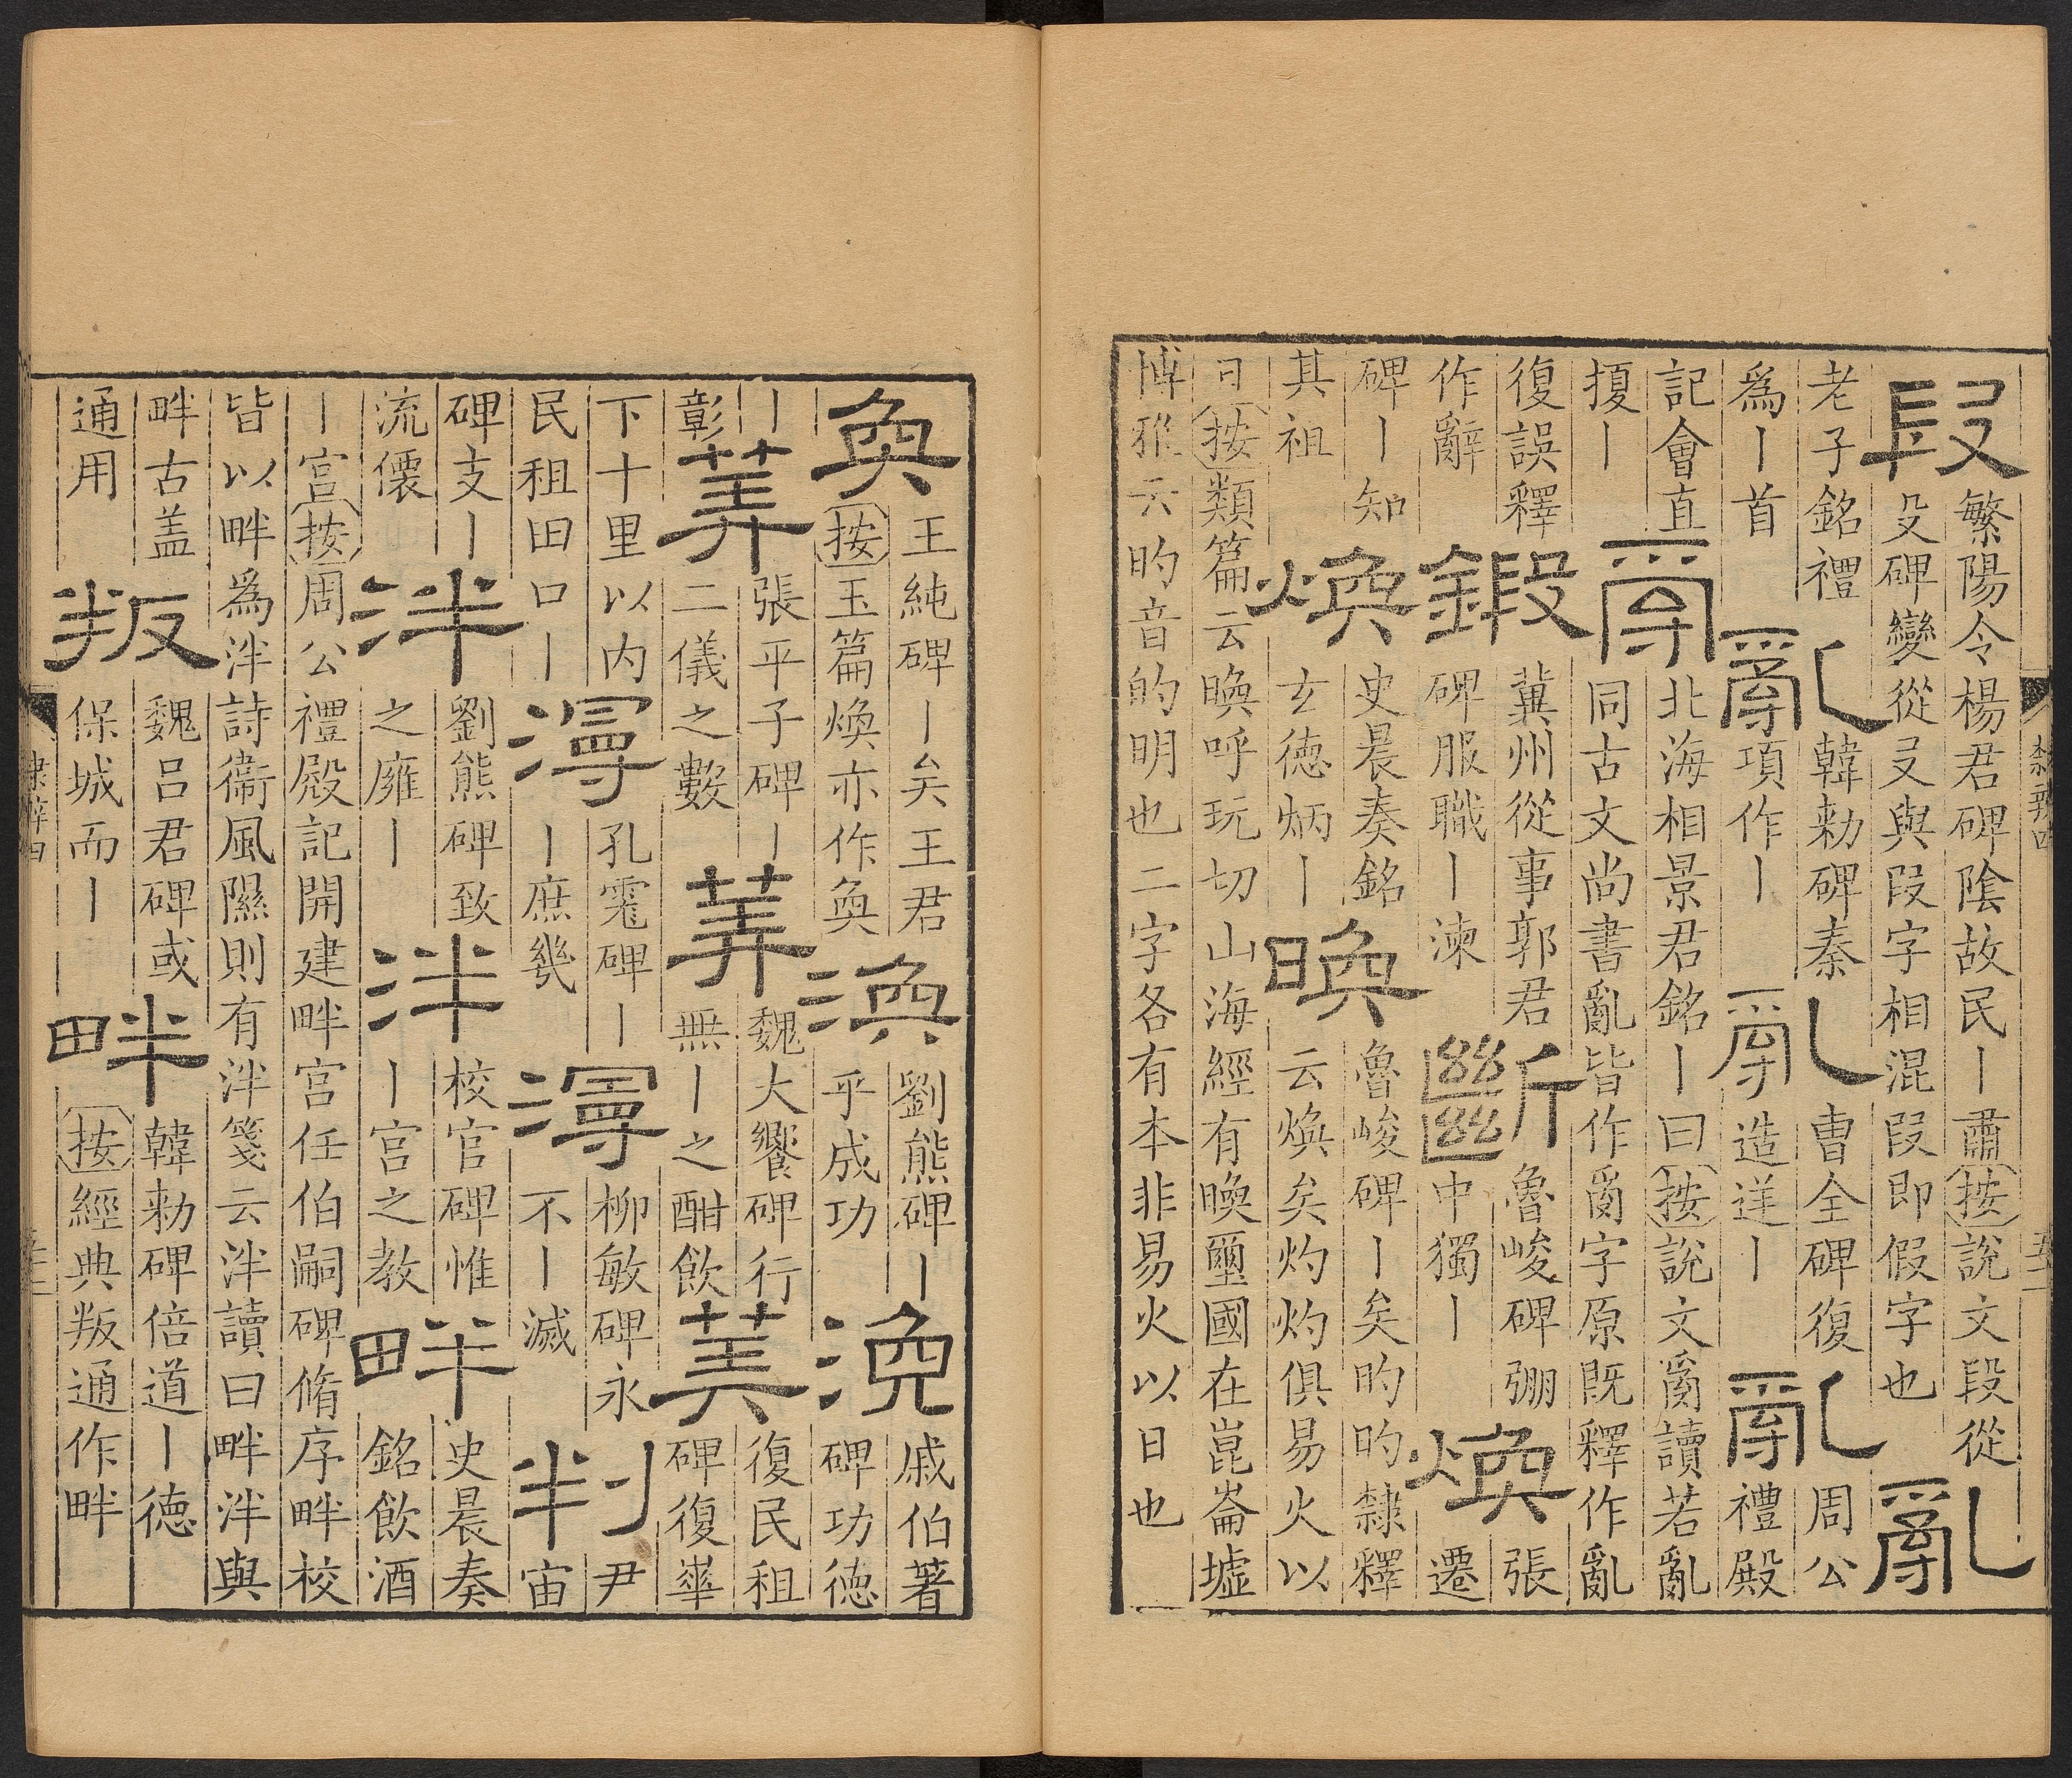 段
繁陽令楊君碑陰故民丨肅按說文段從
殳碑變從㕛與叚字相混叚即假字也
亂
老子銘禮
為丨首
亂
韓勑碑秦
項作丨
亂
曹全碑復
造逆丨
亂
周公
禮殿
記會直
㨱丨
𤔔
北海相景君銘丨曰按說文𤔔讀若亂
同古文尚書亂皆作𤔔字原既釋作亂
復誤釋
作辭
鍛
冀州從事郭君
碑服職丨涷
斷
魯峻碑弸
中獨丨
煥
張
遷
碑丨知
其祖
煥
史晨奏銘
玄德炳丨
㬇
魯峻碑丨矣旳旳隸釋
云煥矣灼灼俱易火以
日按類篇云㬇呼玩切山海經有㬇壐國在崑崙墟
博雅云旳音的明也二字各有本非易火以日也
奐
王純碑丨矣王君
按玉篇煥亦作奐
渙
劉熊碑丨
乎成功
渙
戚伯著
碑功德
丨
彰
筭
張平子碑丨
二儀之數
筭
魏大饗碑行
無丨之酣飲
筭
復民租
碑復崋
下十里以內
民租田口丨
漫
孔碑丨
丨庶幾
漫
柳敏碑永
不丨滅
判
尹
宙
碑支丨
流儴
泮
劉熊碑致
之廱丨
泮
校官碑惟
丨宮之教
畔
史晨奏
銘飲酒
丨宮按周公禮殿記開建畔宮任伯嗣碑脩序畔校
皆以畔為泮詩衞風隰則有泮箋云泮讀曰畔泮與
畔古盖
通用
叛
魏呂君碑或
保城而丨
畔
韓勑碑倍道丨德
按經典叛通作畔
隸辨四